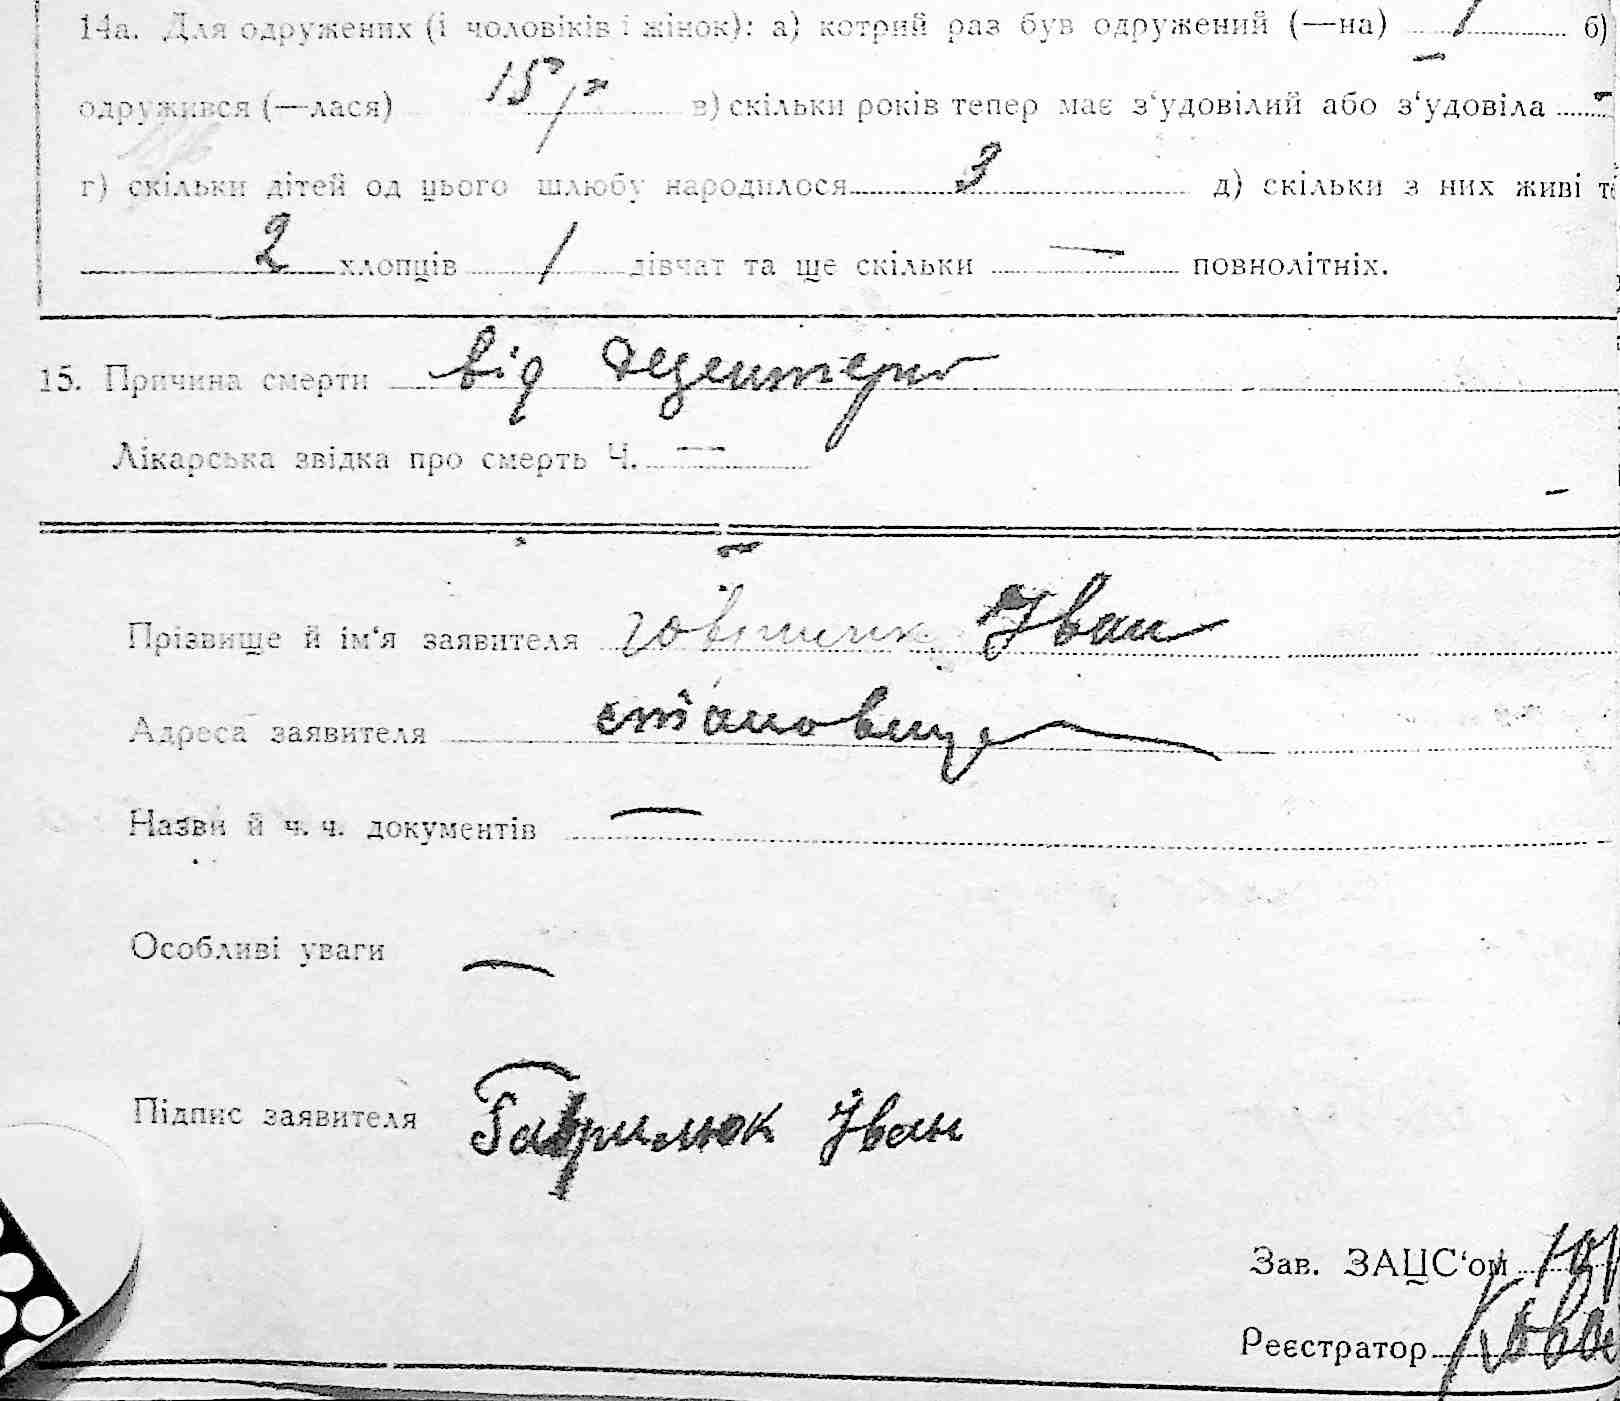 14а. Для одружених (і чоловіків і жінок): а) котрий раз був одружений (—на) 1 б)
одружився (—лася) 15 в) скільки років тепер має з‘удовілий або з‘удовіла —
г) скільки дітей од цього шлюбу народилося 3 д) скільки з них живі
2 хлопців 1 дівчат та ще скільки — повнолітніх.
15. Причина смерти від
Лікарська звідка про смерть Ч. —
Прізвище й ім‘я заявителя Іван
Адреса заявителя становище
Назви й ч. ч. документів —
Особливі уваги —
Підпис заявителя Гаврилюк Іван
Зав. ЗАЦС‘ом
Реєстратор